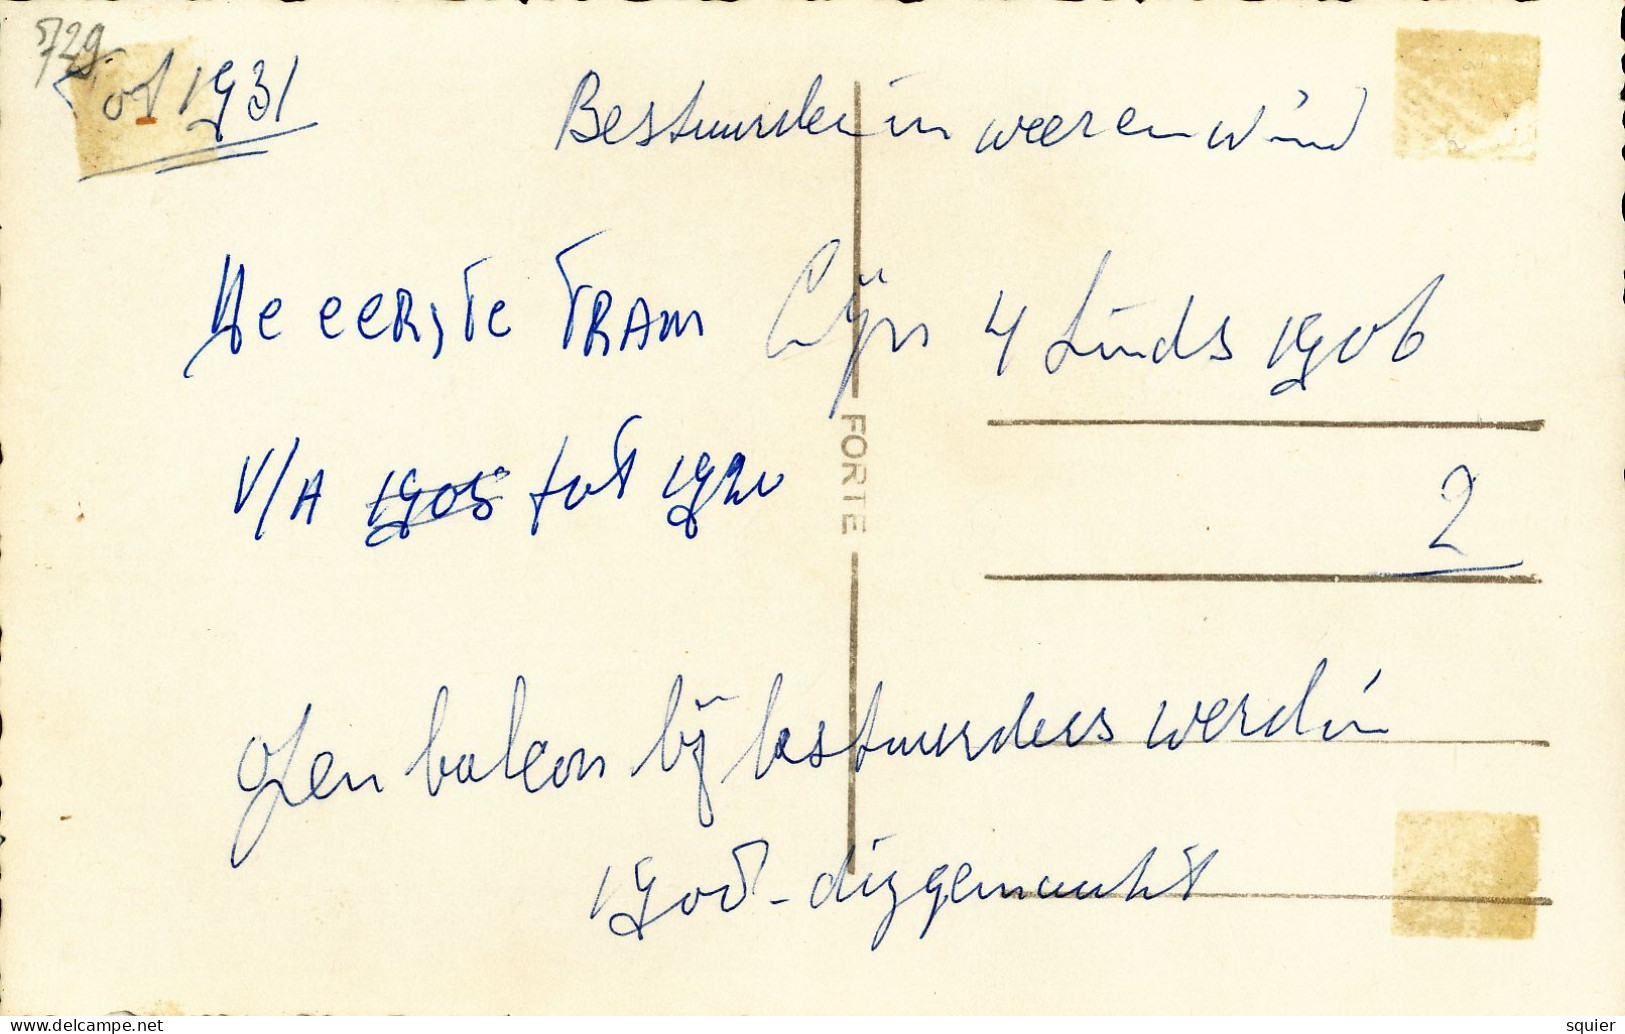 729
tot 1931
Bestuurder in weer en wind
De eerste TRAM Lijn 4 Sinds 1906
V/A 1905 tot 1920
FORTE
2
balcon bij bestuurders werd in
digtgemaakt
delcampe.net
squier